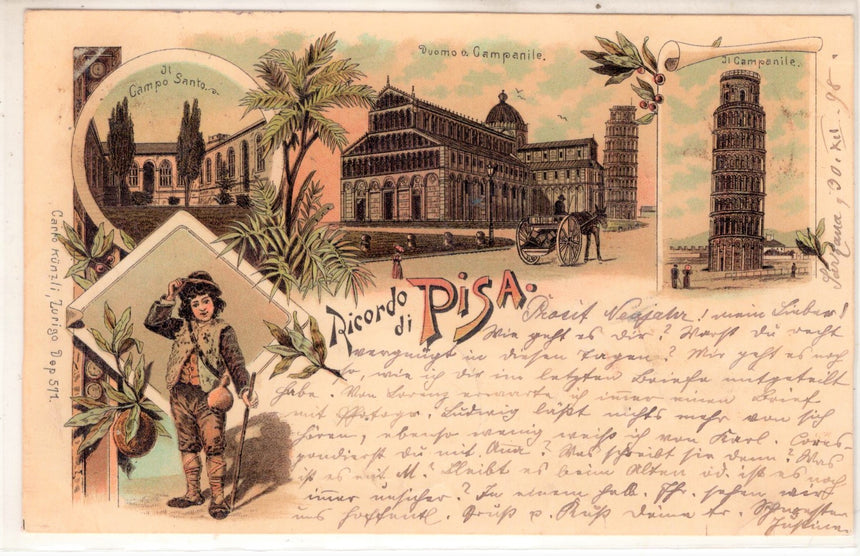 Il
Campo Santo.
Duomo e Campanile.
Il Campanile.
Carlo Künzli, Zurigo Dep 571.
Ricordo
di PISA.
Sarzana, 30. 95.
Prosit Neujahr! mein Lieber!
Wie geht es dir? Warst du recht
vergnügt in diesen Tagen? Mir geht es noch
so, wie ich dir im letzten Briefe mitgeteilt
habe. Von Lorenz erwarte ich immer einen Brief
mit Fotogr. Ludwig läßt nichts mehr von sich
hören, ebenso wenig weiß ich von Karl. Corres-
pondierst du mit Anna? Was schreibt sie denn? Was
ist es mit M.? Bleibt es beim Alten od. ist es noch
immer unsicher? In einem halb. sehen wir
uns hoffentl. Gruß u. Kuß Deine tr. Schwester
Justine.